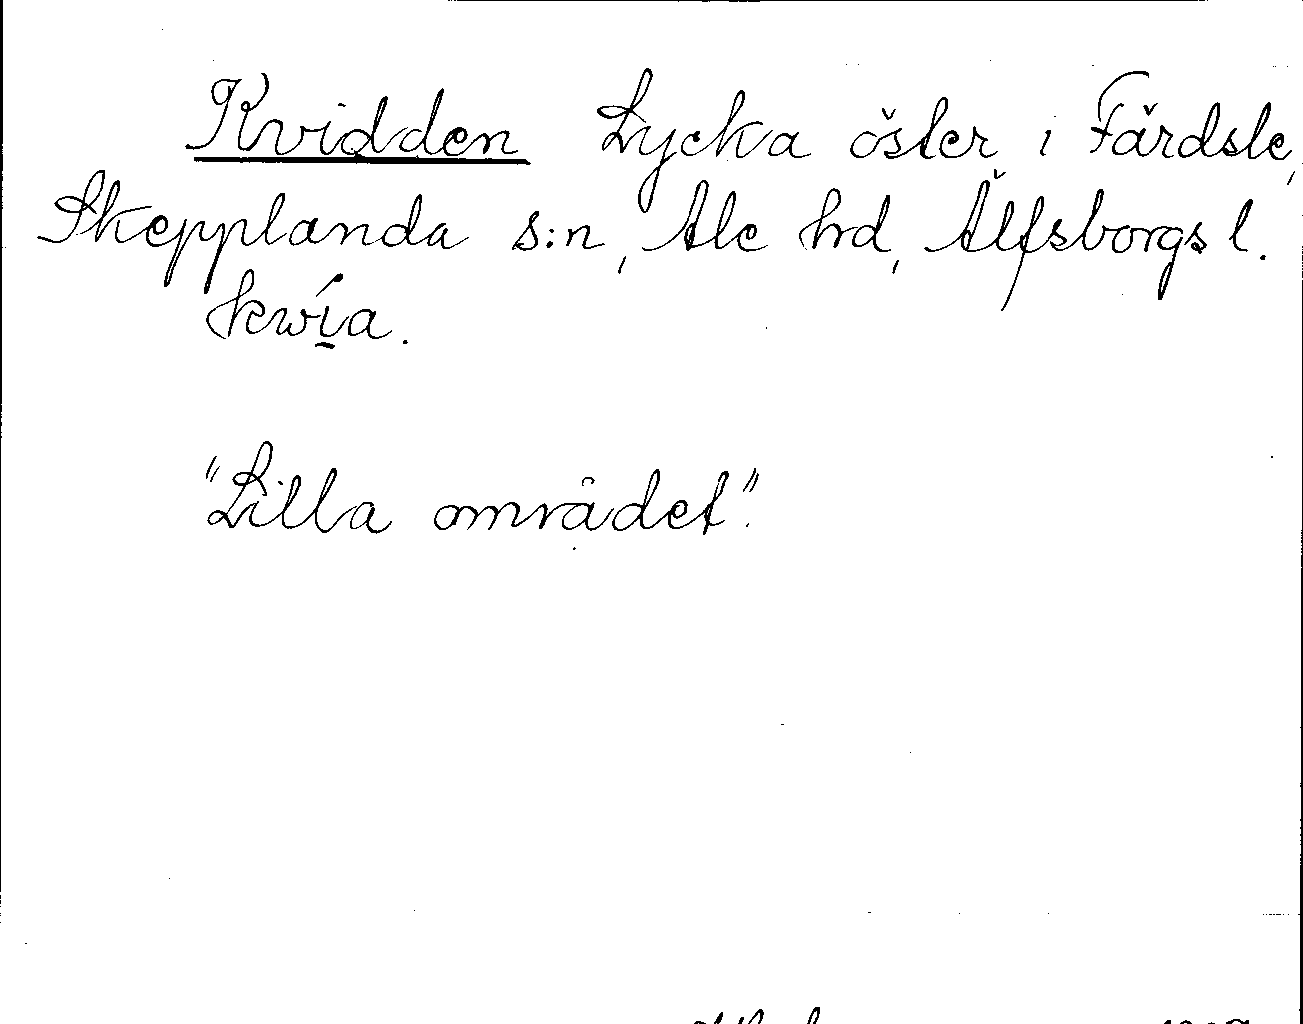 Kvidden Lycka öster i Färdsle,
Skepplanda s:n, Ale hd, Älfsborgs l.
kwí̱a.
"Lilla området".